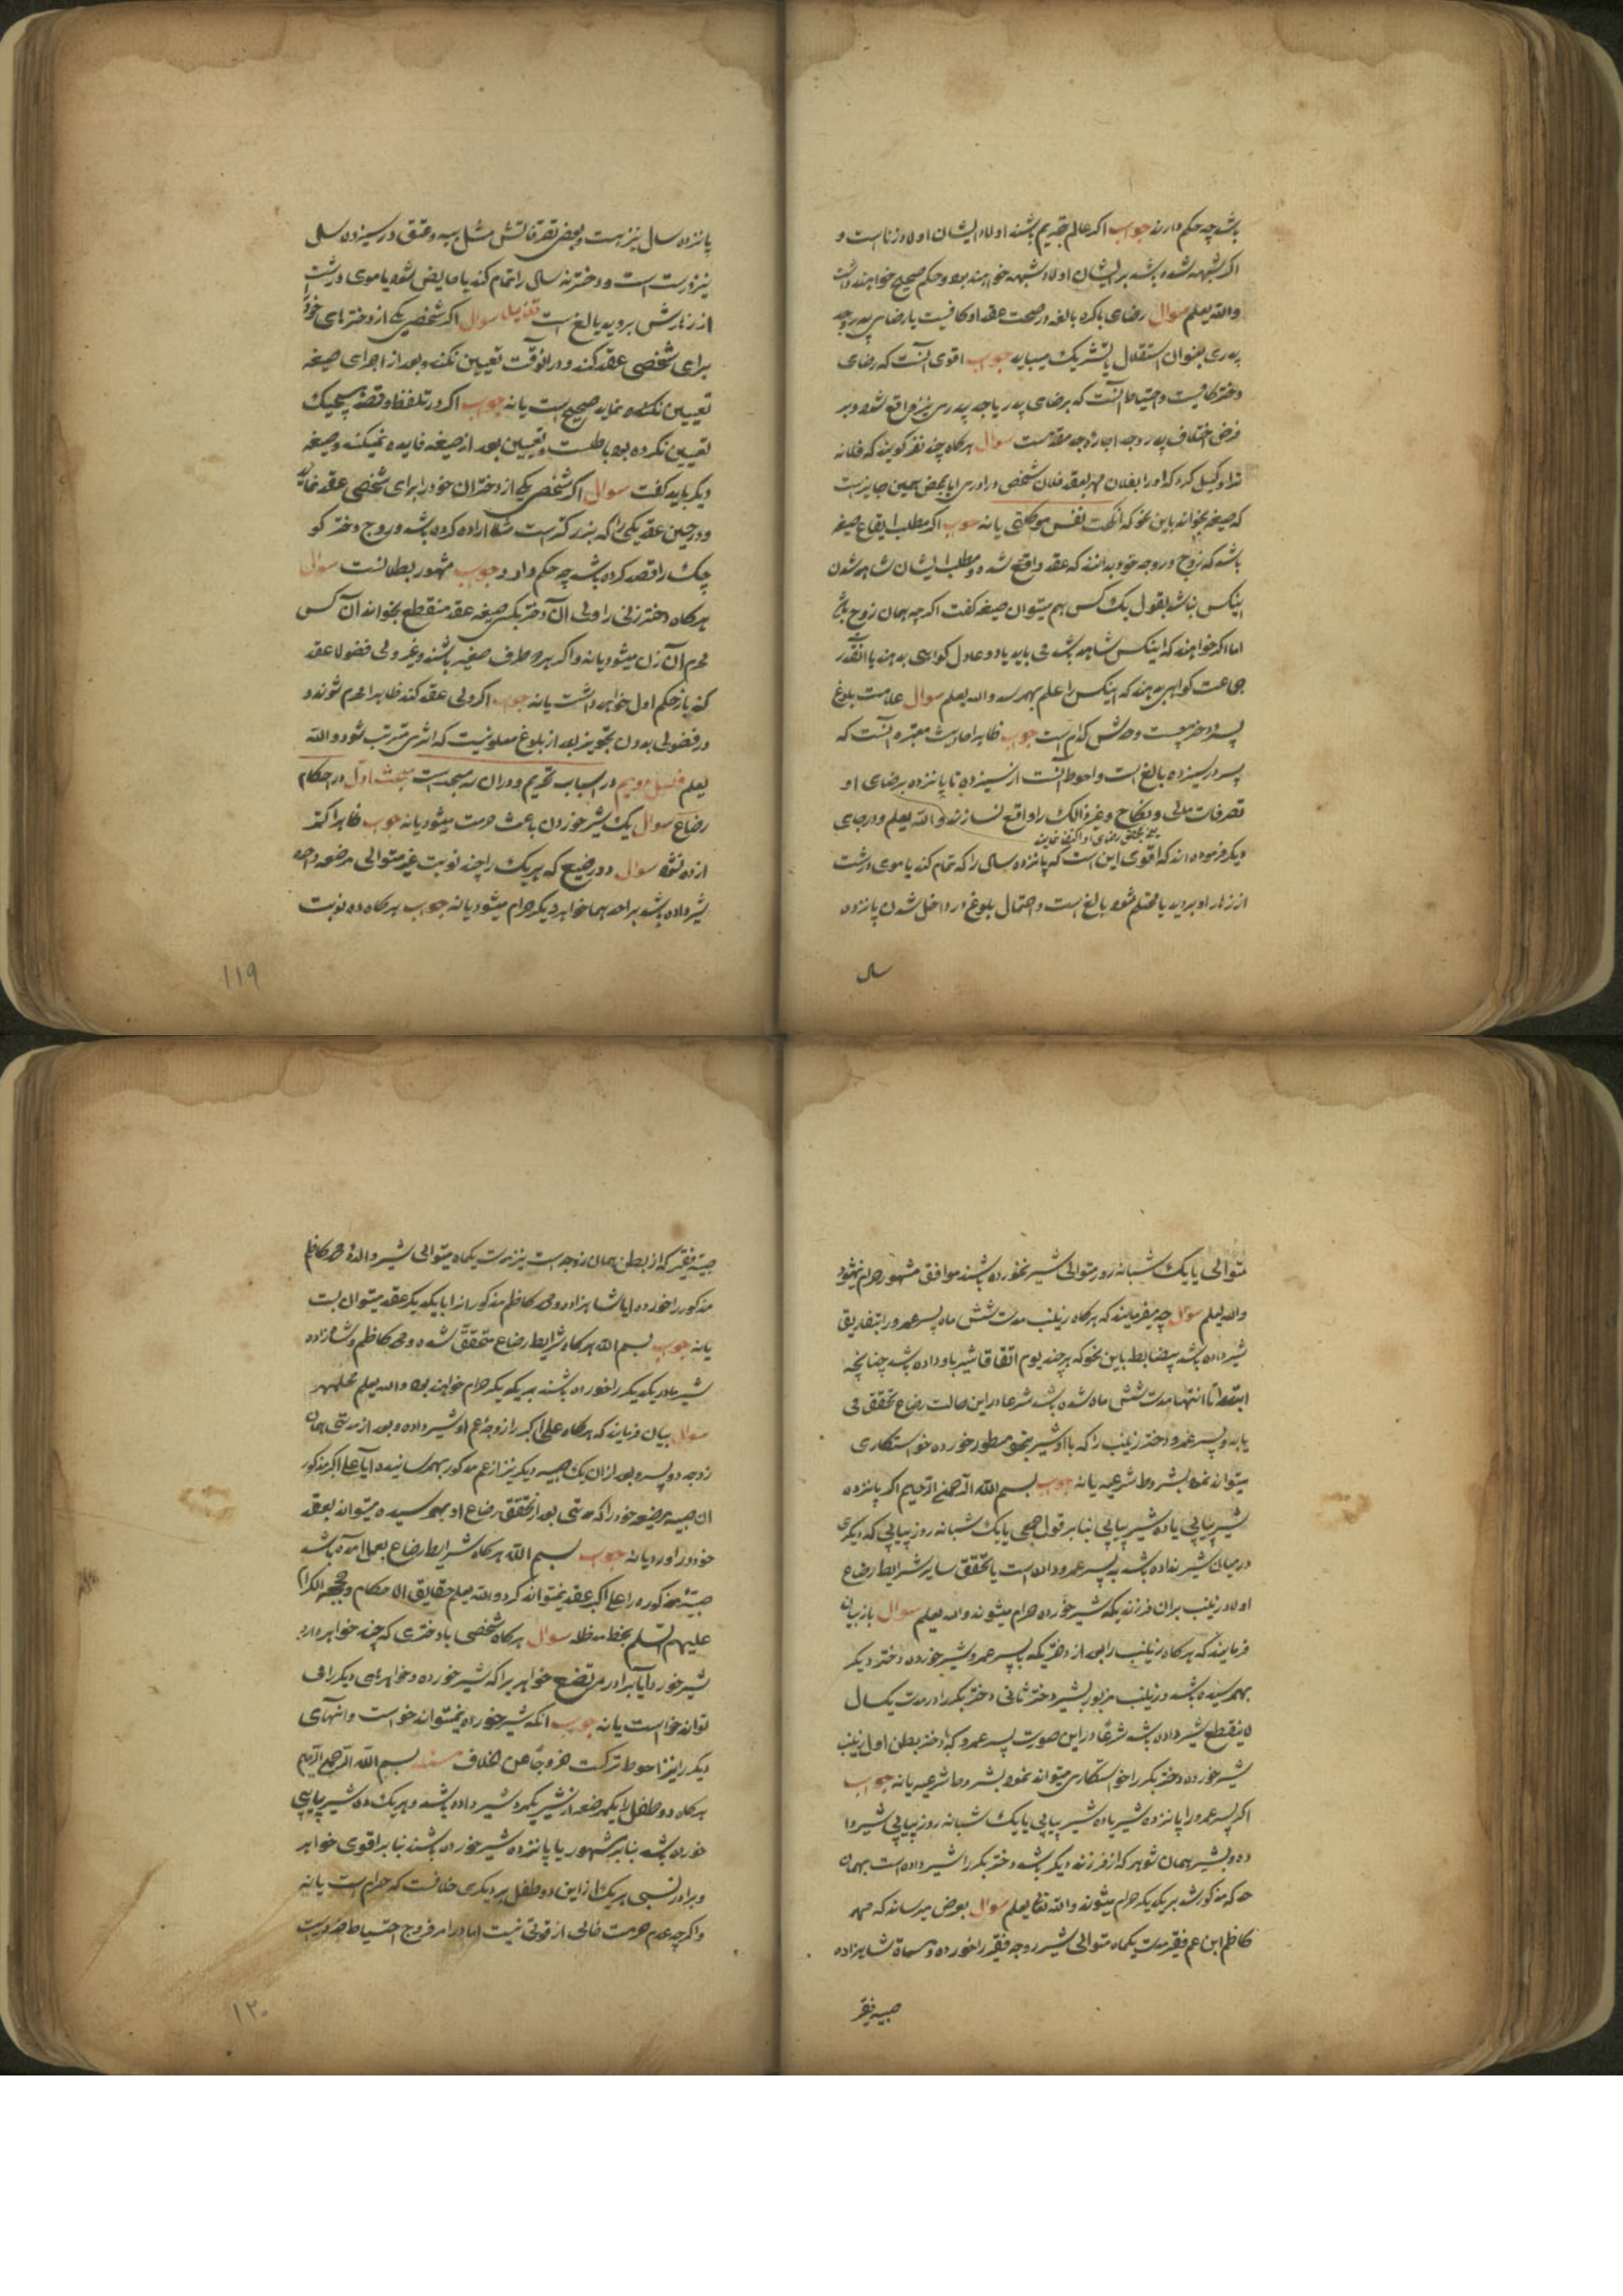 باشد چه حکم دارند جواب اگر عالم بتحریم باشند اولاد ایشان اولاد زناست و
اگر شبهه شده باشد بر ایشان اولاد شبهه خواهند بود و حکم صحیح خواهند داشت
والله یعلم سوال رضای باکره بالغه در صحت عقد او کافیست یا رضای پدر و جد
پدری بعنوان استقلال یا تشریک میباید جواب اقوی آنست که رضای
دختر کافیست و احتیاط آنست که برضای پدر یا جد پدری نیز واقع شود و بر
فرض اختلاف پدر و جد اجازه جد مقدمست سوال هرگاه چند نفر گویند که فلانه
ترا وکیل کرد که او را بفلان مهر بعقد فلان شخص دراوری ایا بمحض همین جایز است
که صیغه بخواند باین نحو که انکحت نفس موکلتی یا نه جواب اگر مطلب ایقاع صیغه
باشد که زوج و زوجه خود بدانند که عقد واقع شده و مطلب ایشان شاهد شدن
اینکس نباشد بقول یک کس هم میتوان صیغه گفت اگرچه همان زوج باشد
اما اگر خواهند که اینکس شاهد باشد می باید یا دو عادل گواهی بدهند یا آنقدر
جماعت گواهی بدهند که اینکس را علم بهمرسد والله یعلم سوال علامت بلوغ
پسر و دختر چیست و حدش کدام است جواب ظاهر احادیث معتبره آنست که
پسر در سیزده بالغ است و احوط آنست از سیزده تا پانزده برضای او
تصرفات مالی و نکاح و غیر ذالک را واقع نسازند والله یعلم و در جای
دیگر فرموده اند که اقوی این است که پانزده سال را که تمام کند یا موی درشت
از زهار او بروید یا محتلم شود بالغ است و احتمال بلوغ در داخل شدن پانزده
سال
پانزده سال نیز هست و بعض تصرفاتش مثل هبه و عتق در سیزده سال
نیز درست است و دختر نه سال را تمام کند یا حایض شود یا موی درشت
از زهارش بروید بالغ است سوال اگر شخصی یکی از دخترهای خود
برای شخصی عقد کند و در آنوقت تعیین نکند و بعد از اجرای صیغه
تعیین نماید صحیح است یا نه جواب اگر در تلفظ و قصد هیچیک
تعیین نکرده بود باطلست و تعیین بعد از صیغه فایده نمیکند و صیغه
دیگر باید گفت سوال اگر شخصی یکی از دختران خود را برای شخصی عقد نماید
و در حین عقد یکی را که بزرگتر است مثلا اراده کرده باشد و زوج دختر کو
چک را قصد کرده باشد چه حکم دارد جواب مشهور بطلانست سوال
هرگاه دختر زنی را ولی آن دختر بکسی صیغه عقد منقطع بخواند آن کس
محرم آن زن میشود یا نه و اگر هر دو طرف صغیر باشند و غیر ولی فضولا عقد
کند باز حکم اول خواهد داشت یا نه جواب اگر ولی عقد کند ظاهرا محرم شوند و
در فضولی بدون تجویز بعد از بلوغ معلوم نیست که اثری مترتب شود والله
یعلم فصل دویم در اسباب تحریم و در ان سه مبحث است مبحث اول در احکام
رضاع سوال یک شیر خوردن باعث حرمت میشود یا نه جواب ظاهرا کمتر
از ده نشود سوال دو رضیع که هر یک را چند نوبت غیر متوالی مرضعه واحده
شیر داده باشد بر احدیهما خواهر دیگر حرام میشود یا نه جواب هرگاه ده نوبت
۱۱۹
متوالی یا یک شبانه روز متوالی شیر نخورده باشند موافق مشهور حرام نمیشود
والله یعلم سوال چه میفرمایند که هرگاه زینب مدت شش ماه پسر عمرو را بتفاریق
شیر داده باشد بیضابط باین نحو که هر چند یوم اتفاقا شیر باو داده باشد چنانچه
ابتدا تا انتها مدت شش ماه شده باشد شرعا در این حالت رضاع تحقق می
یابد و پسر عمرو دختر زینب را که با او شیر بنحو مسطور خورده خواستکاری
میتواند نمود بشروط شرعیه یا نه جواب بسم الله الرحمن الرحیم اگر پانزده
شیر پیاپی یا ده شیر پیاپی بنا بر قول جمعی یا یک شبانه روز پیاپی که دیگری
در میان شیر نداده باشد به پسر عمرو داده است با تحقق سایر شرایط رضاع
اولاد زینب بر ان فرزندی که شیر خورده حرام میشوند والله یعلم سوال باز بیان
فرمایند که هرگاه زینب را بعد از دختریکه با پسر عمرو شیر خورده دختر دیگر
بهم رسیده باشد و زینب مزبور بشیر دختر ثانی دختر بکر را در مدت یکسال
لاینقطع شیر داده باشد شرعا در این صورت پسر عمرو که با دختر بطن اول زینب
شیر خورده دختر بکر را خواستکاری میتواند نمود بشروط شرعیه یا نه جواب
اگر پسر عمرو را پانزده شیر یا ده شیر پیاپی یا یک شبانه روز پیاپی شیر دا
ده و بشیر همان شوهر که از فرزند دیگر باشد دختر بکر را شیر داده است بهمان
حد که مذکور شد بر یکدیگر حرام میشوند والله تعالی یعلم سوال بعرض میرساند که محمد
کاظم ابن عم فقیر مدت یکماه متوالی شیر زوجه فقیر را خورده و مسماة شاهزاده
صبیه فقیر
صبیه فقیر که از بطن همان زوجه است نیز مدت یکماه متوالی شیر والده محمد کاظم
مذکور را خورده ایا شاهزاده و محمد کاظم مذکور را با یکدیگر عقد میتوان بست
یا نه جواب بسم الله هرگاه شرایط رضاع متحقق شده و محمد کاظم و شاهزاده
شیر مادر یکدیگر را خورده باشند بر یکدیگر حرام خواهند بود والله یعلم
سوال بیان فرمایند که هرگاه علی اکبر را زوجه عم او شیر داده و بعد از مدتی همان
زوجه دو پسر و بعد از ان یک صبیه دیگر نیز از عم مذکور بهم رسانیده آیا علی اکبر مذکور
ان صبیه مرضعه خود را که مدتی بعد از تحقق رضاع او بهم رسیده میتواند بعقد
خود دراورد یا نه جواب بسم الله هرگاه شرایط رضاع بعمل آمده باشد
صبیه مذکوره را علی اکبر عقد نمیتواند کرد والله یعلم حقایق الاحکام و حججه الکرام
علیهم السلم بخط مد ظله سوال هرگاه شخصی با دختری که چند خواهر دارد
شیر خورد آیا برادر مرتضع خواهر براکه شیر خورده و خواهرهای دیگر را می
تواند خواست یا نه جواب انکه شیر خورده نمیتواند خواست و انهای
دیگر را نیز احوط ترکست خروجا عن الخلاف مسئله بسم الله الرحمن الرحیم
هرگاه دو طفل را یکمرضعه از شیر یکمرد شیر داده باشد و هر یک ده شیر پیاپی
خورده باشد بنا بر مشهور یا پانزده شیر خورده باشند بنا بر اقوی خواهر
و برادر نسبی هر یک از این دو طفل بر دیگری خلافست که حرام است یا نه
و اگرچه عدم حرمت خالی از قوتی نیست اما در امر فروج احتیاط ضرور است
۱۲۰